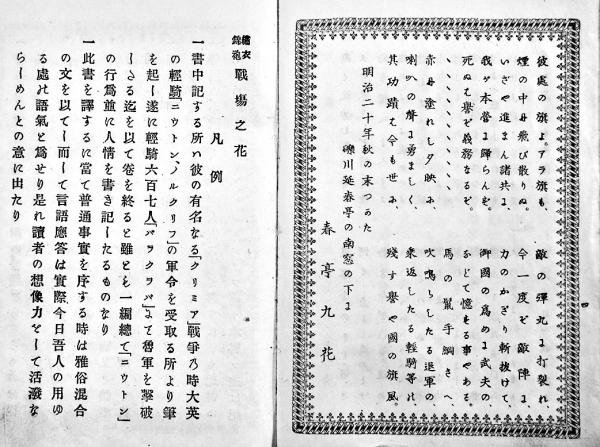 彼處の旗よ。アラ旗も、　敵の彈丸に打裂れ
煙の中に飛び散りぬ。　今一度ど敵陣に、
いざや進まん諸共に、　力のかぎり斬抜けて、
我が本營に歸らんを。　御國の爲めに武夫の
死ぬも譽ぞ義務なるぞ。　などて憶をる事やある。
、、、、、、、、　馬の鬣手綱さへ、
赤に塗れし夕映に　吹鳴らしたる退軍の
喇叭の聲に勇ましく、　乘返したる輕騎等ハ、
其功蹟ぞ今も世に、　殘す譽や國の旗風。
明治二十年秋の末つかた
礫川延春亭の南窓の下に
春亭九花
四
戰塲之花
凡例
一書中記する所ハ彼の有名なる「クリミア」戰爭の時大英
の輕騎「ニウトン、ノルクリフ」の軍令を受取る所より筆
を起し遂に輕騎六百七人「バラクラバ」にて魯軍を撃破
しさる迄を以て卷を終ると雖とも一編總て「ニウトン」
の行爲並に人情を書き記したるものなり
一此書を譯するに當て普通事實を序する時は雅俗混合
の文を以てし而して言語應答は實際今日吾人の用ゆ
る處に語氣と爲せり是れ讀者の想像力として活潑な
らしめんとの意に出たり